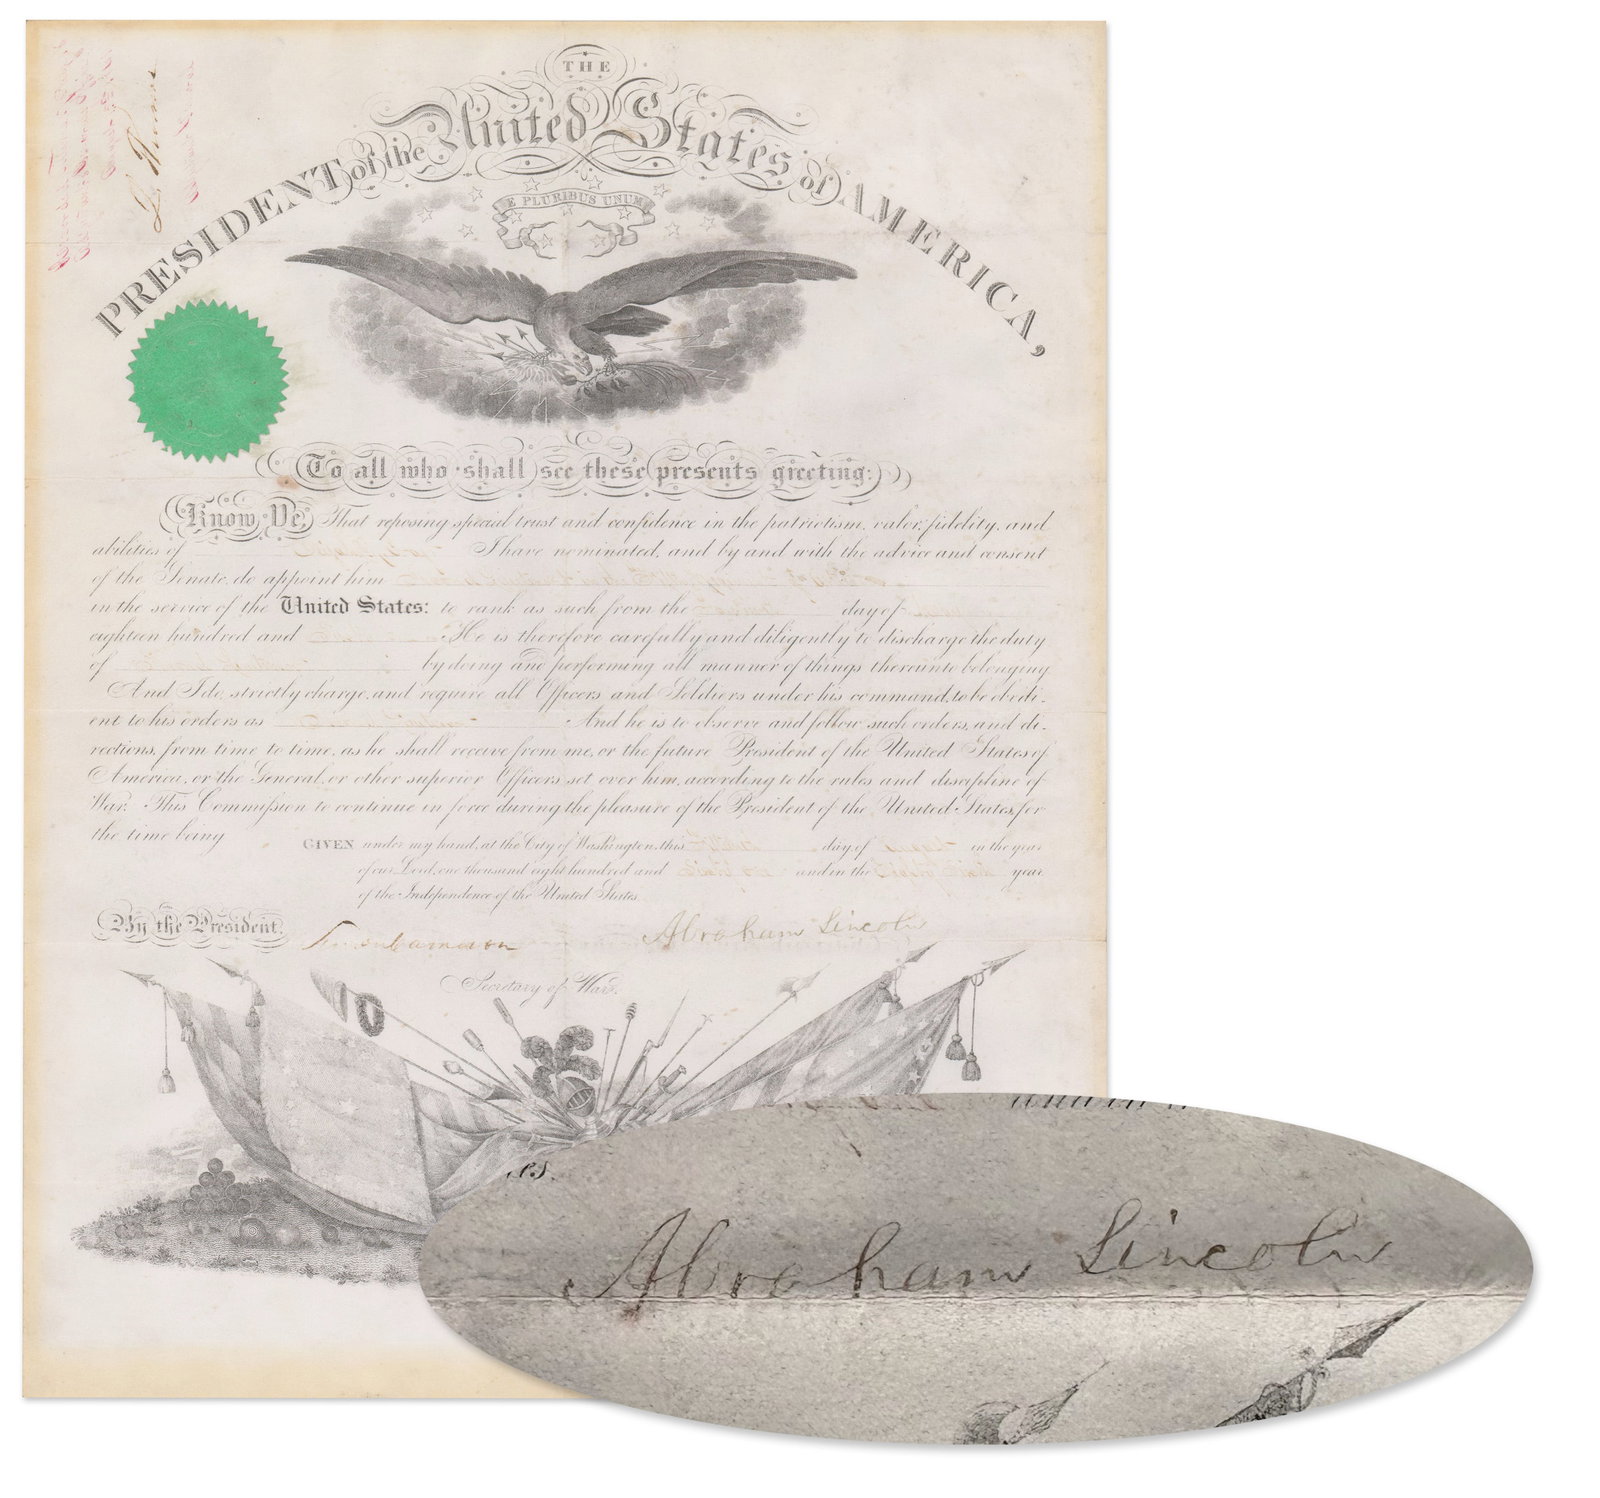 THE
PRESIDENT of the United States of AMERICA,
E PLURIBUS UNUM
To all who shall see these presents greeting:
Know Ye, That reposing special trust and confidence in the patriotism, valor, fidelity, and
abilities of I have nominated, and by and with the advice and consent
of the Senate, do appoint him
in the service of the United States: to rank as such from the day of
eighteen hundred and He is therefore carefully and diligently to discharge the duty
of by doing and performing all manner of things thereunto belonging
And I do, strictly charge, and require all Officers and Soldiers under his command, to be obedi-
ent to his orders as And he is to observe and follow such orders, and di-
rections, from time to time, as he shall receive from me, or the future President of the United States of
America, or the General, or other superior Officers set over him, according to the rules and discipline of
War. This Commission to continue in force during the pleasure of the President of the United States, for
the time being
GIVEN under my hand, at the City of Washington, this day of in the year
of our Lord, one thousand eight hundred and Sixty one and in the Eighty Sixth year
of the Independence of the United States.
By the President, Simon Cameron Abraham Lincoln
Secretary of War.
Abraham Lincoln